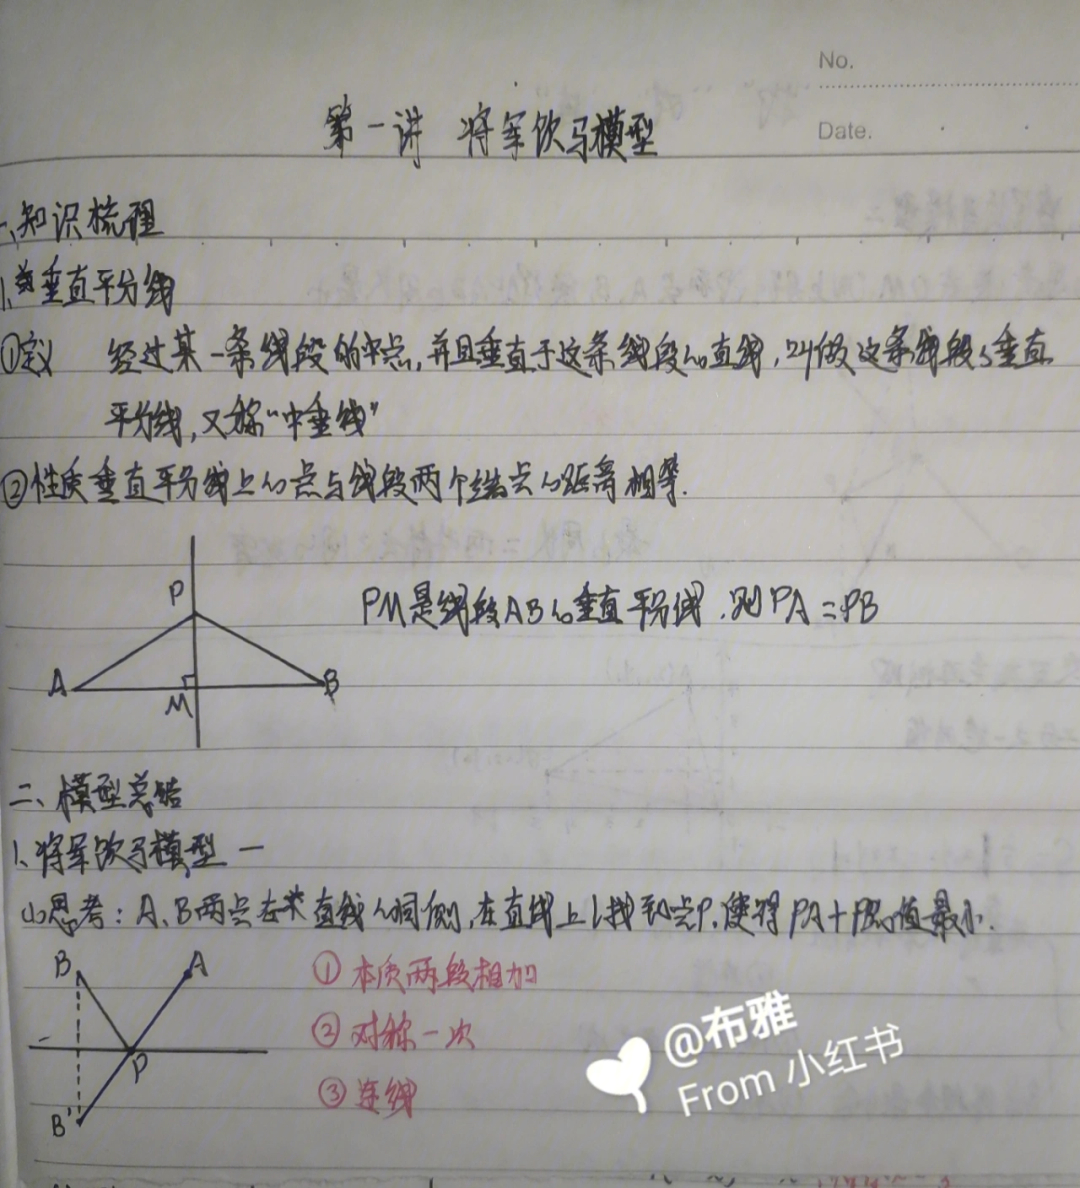 No.
第一讲 将军饮马模型
Date.
一、知识梳理
1、垂直平分线
①定义 经过某一条线段的中点,并且垂直于这条线段的直线,叫做这条线段的垂直
平分线,又称“中垂线”
②性质 垂直平分线上的点与线段两个端点的距离相等.
P
PM是线段AB的垂直平分线.则PA=PB
A B
M
二、模型总结
1、将军饮马模型一
(1)思考:A、B两点在直线l同侧,在直线上l找到点P,使得PA+PB的值最小.
B A
①本质两段相加
②对称一次
P
③连线
B'
@布雅
From 小红书